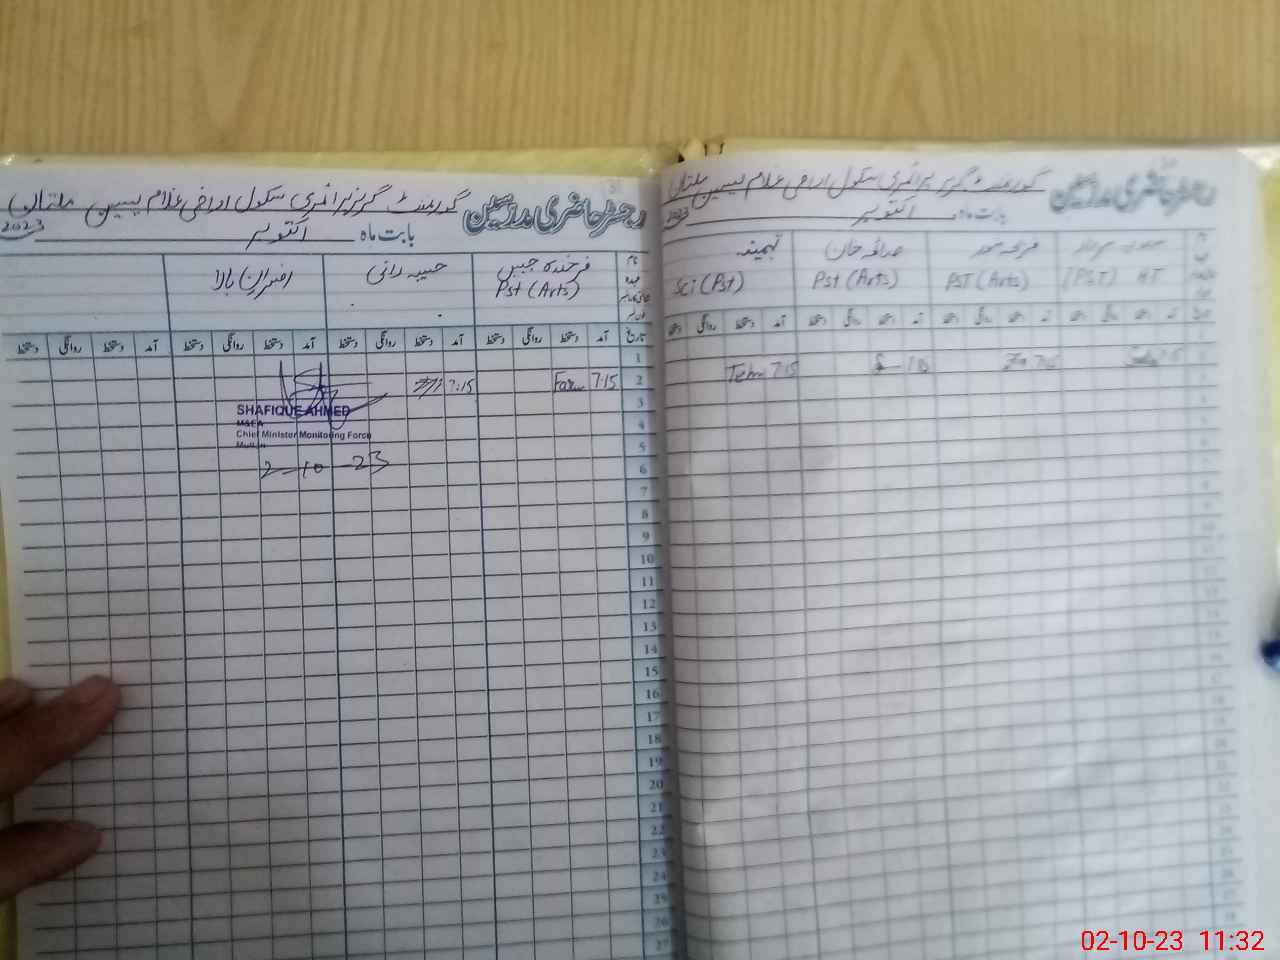 رجسٹر حاضری مدرسین گورنمنٹ گرلز پرائمری سکول اراضی غلام یسین ملتان
بابت ماہ اکتوبر 2023
نام
عہدہ
فرخندہ جبیں
Pst (Arts)
حبیبہ رانی
افسران بالا
تاریخ آمد دستخط روانگی دستخط آمد دستخط روانگی دستخط آمد دستخط روانگی دستخط آمد دستخط روانگی دستخط
1
2 7:15 7:15
3
4
5
6
7
8
9
10
11
12
13
14
15
16
17
18
19
20
21
22
23
24
25
26
27
SHAFIQUE AHMED
M&EA
Chief Minister Monitoring Force
Multan
2-10-23
رجسٹر حاضری مدرسین گورنمنٹ گرلز پرائمری سکول اراضی غلام یسین ملتان
بابت ماہ اکتوبر 2023
HT (PST)
PST (Arts)
صدافہ خان
Pst (Arts)
تہمینہ
Sci (Pst)
آمد دستخط روانگی دستخط
7:15 7:15
02-10-23 11:32